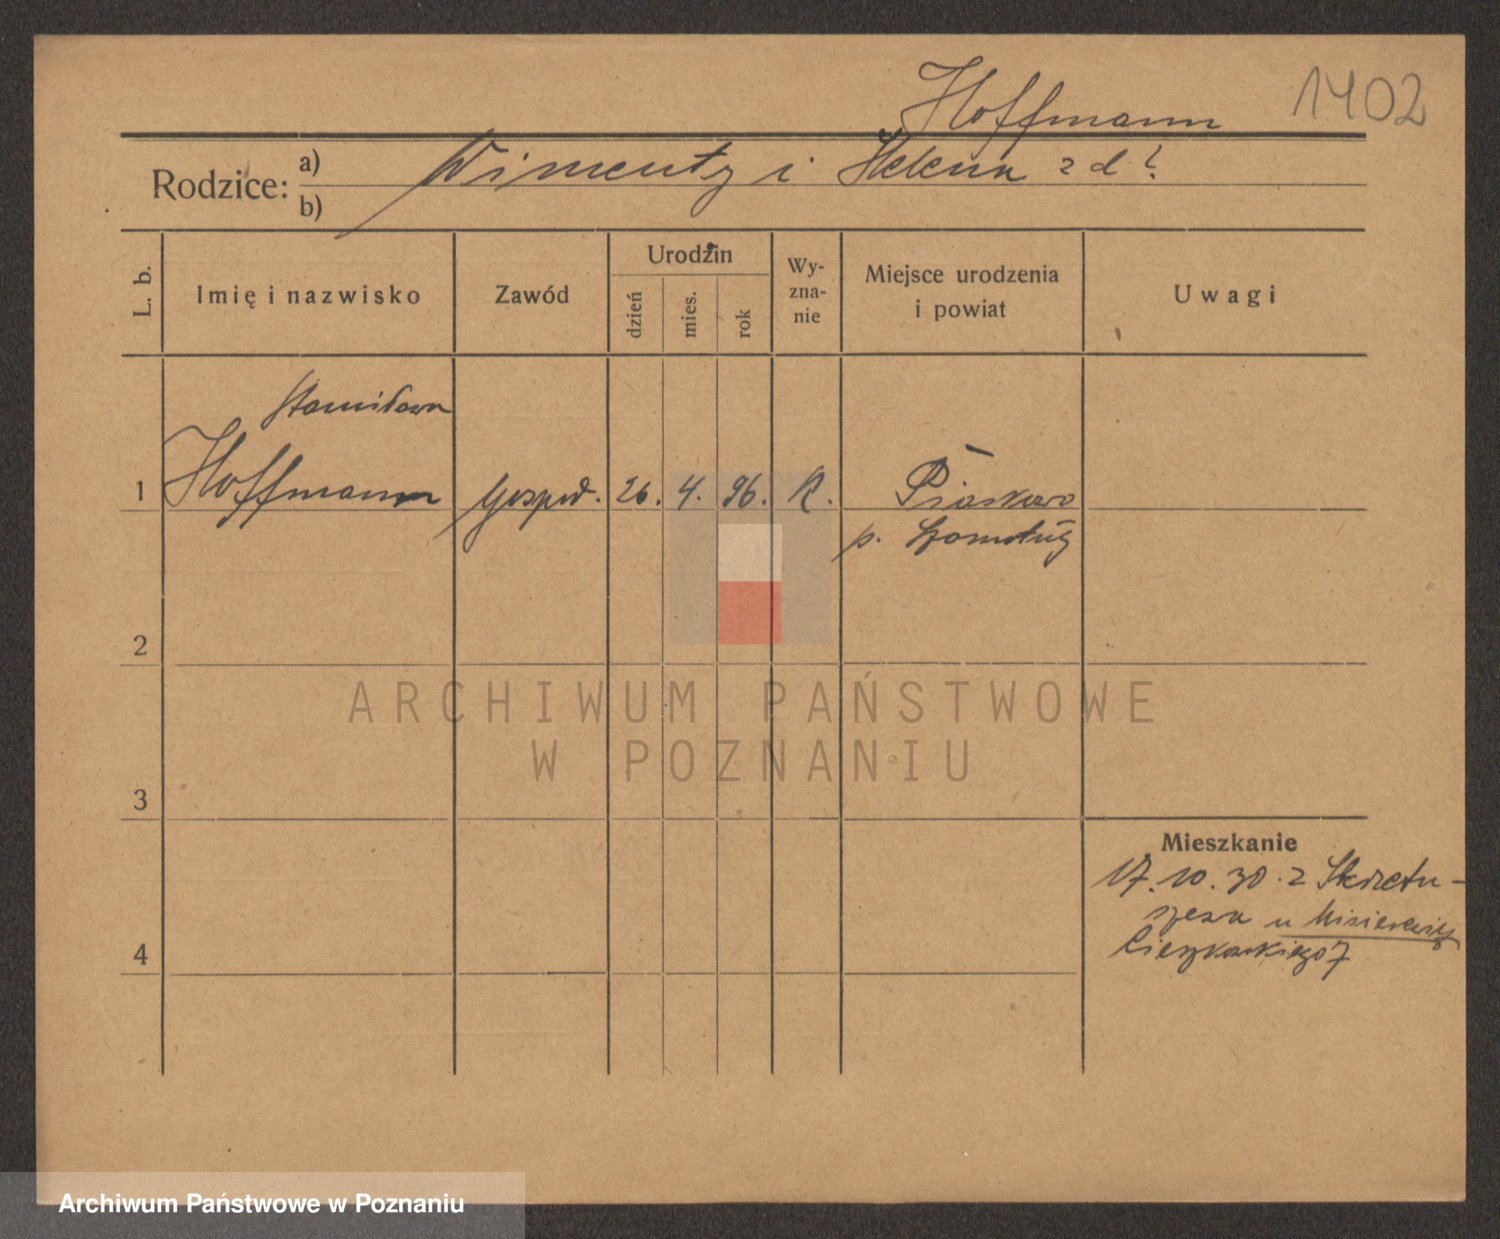 Hoffmann
1402
Rodzice:
a)
Wincenty i Helena z d ?
b)
L. b.
Imię i nazwisko
Zawód
Urodzin
dzień
mies.
rok
Wy-
zna-
nie
Miejsce urodzenia
i powiat
Uwagi
Stanisława
1 Hoffmann gospod. 26. 4. 96. R. Piaskowo
p. Szamotuły
2
3
4
Mieszkanie
17.10.30. z Skrzetu-
szewa u
Cieszkowskiego 7
ARCHIWUM PAŃSTWOWE
W POZNANIU
Archiwum Państwowe w Poznaniu